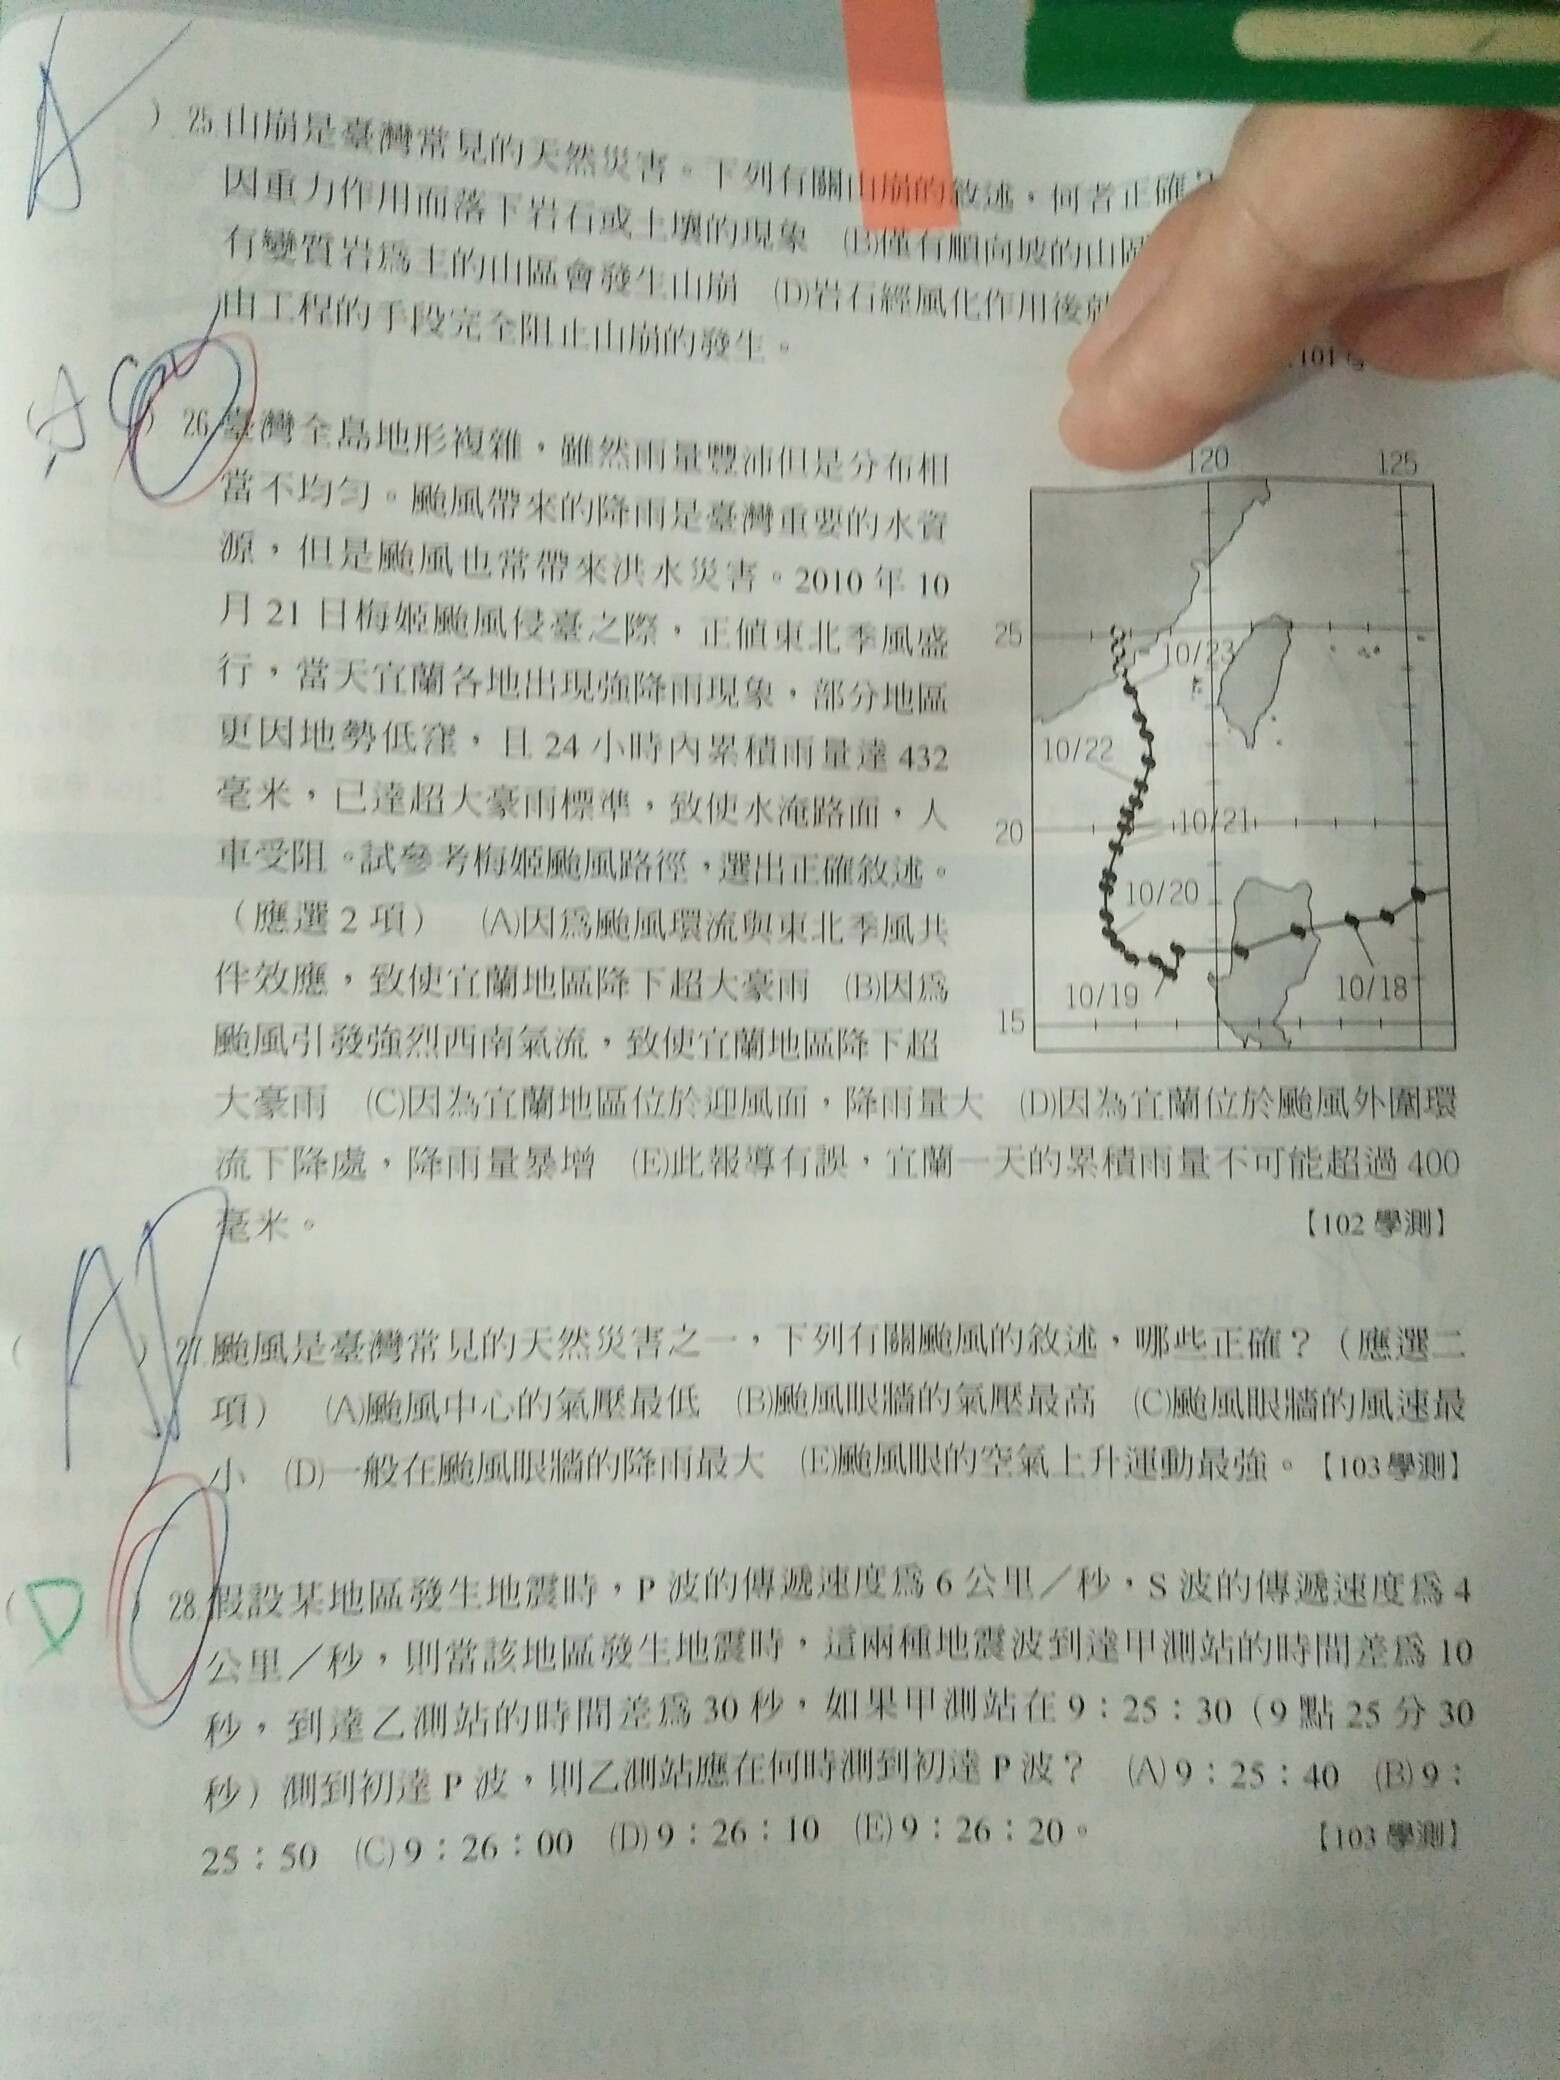 A
) 25.山崩是臺灣常見的天然災害。下列有關山崩的敘述，何者正確
因重力作用而落下岩石或土壤的現象 (B)僅有順向坡的山區
有變質岩為主的山區會發生山崩 (D)岩石經風化作用後
由工程的手段完全阻止山崩的發生。
AC
) 26.臺灣全島地形複雜，雖然雨量豐沛但是分布相
當不均勻。颱風帶來的降雨是臺灣重要的水資
源，但是颱風也常帶來洪水災害。2010 年 10
月 21 日梅姬颱風侵臺之際，正值東北季風盛
行，當天宜蘭各地出現強降雨現象，部分地區
更因地勢低窪，且 24 小時內累積雨量達 432
毫米，已達超大豪雨標準，致使水淹路面，人
車受阻。試參考梅姬颱風路徑，選出正確敘述。
（應選 2 項） (A)因為颱風環流與東北季風共
伴效應，致使宜蘭地區降下超大豪雨 (B)因為
颱風引發強烈西南氣流，致使宜蘭地區降下超
大豪雨 (C)因為宜蘭地區位於迎風面，降雨量大 (D)因為宜蘭位於颱風外圍環
流下降處，降雨量暴增 (E)此報導有誤，宜蘭一天的累積雨量不可能超過 400
毫米。 【102 學測】
120 125
25
10/23
10/22
20
10/21
10/20
10/19
10/18
15
AD
( ) 27.颱風是臺灣常見的天然災害之一，下列有關颱風的敘述，哪些正確？（應選二
項） (A)颱風中心的氣壓最低 (B)颱風眼牆的氣壓最高 (C)颱風眼牆的風速最
小 (D)一般在颱風眼牆的降雨最大 (E)颱風眼的空氣上升運動最強。【103學測】
( D ) 28.假設某地區發生地震時，P 波的傳遞速度為 6 公里／秒，S 波的傳遞速度為 4
公里／秒，則當該地區發生地震時，這兩種地震波到達甲測站的時間差為 10
秒，到達乙測站的時間差為 30 秒，如果甲測站在 9：25：30（9 點 25 分 30
秒）測到初達 P 波，則乙測站應在何時測到初達 P 波？ (A) 9：25：40 (B) 9：
25：50 (C) 9：26：00 (D) 9：26：10 (E) 9：26：20。 【103 學測】